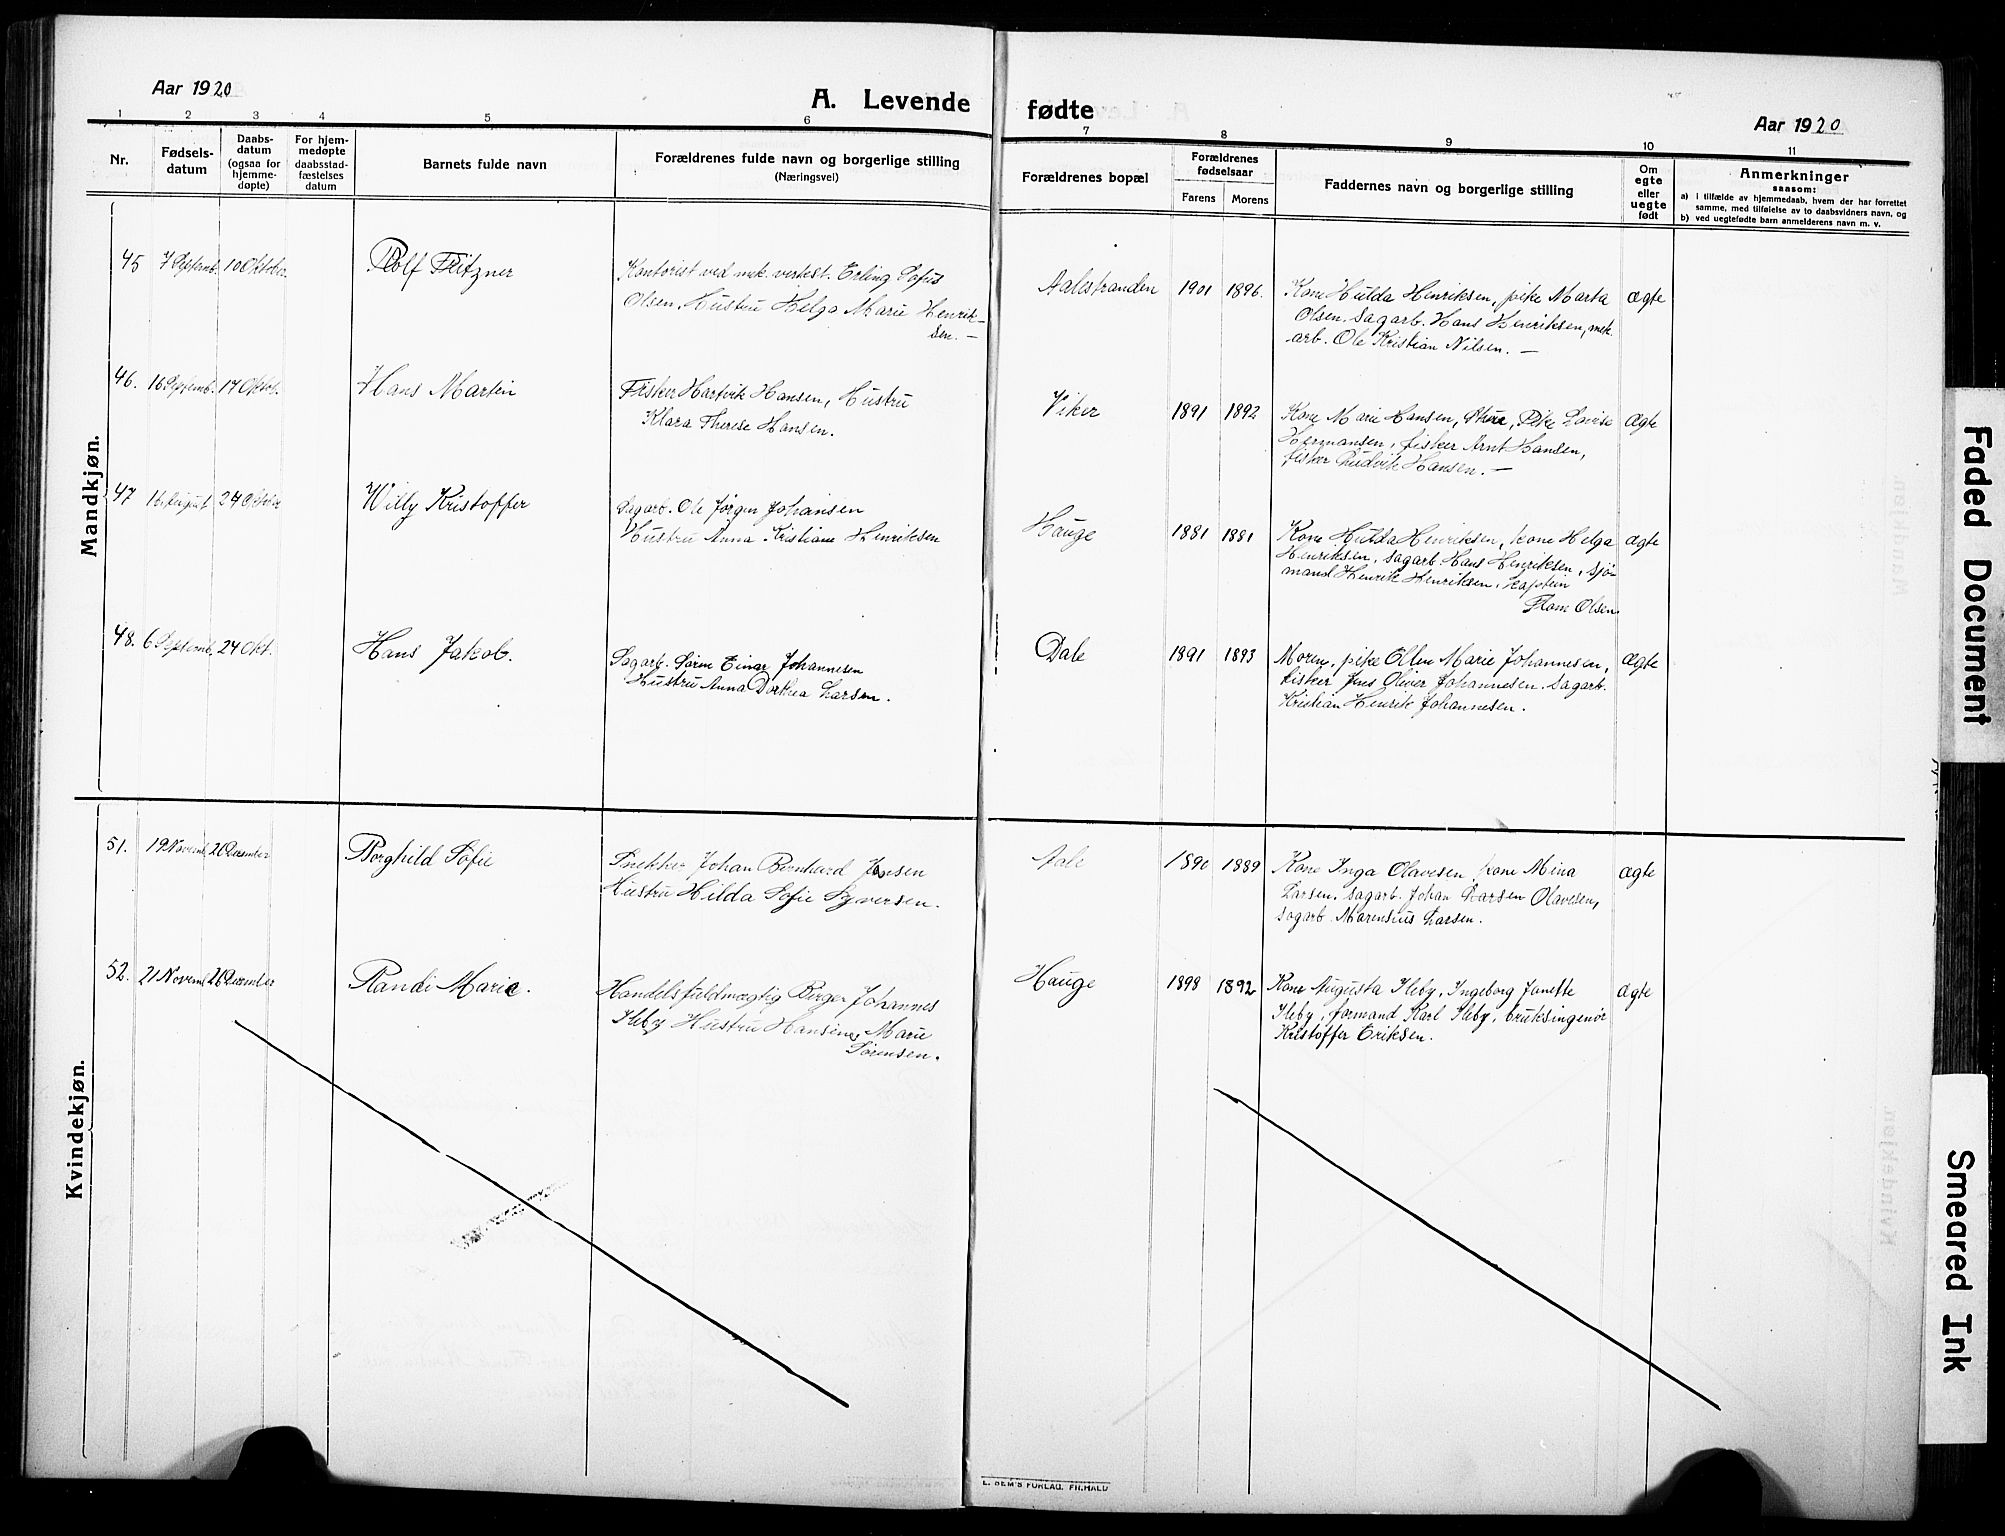 Aar 1920
A. Levende fødte
Aar 1920
1 2 3 4 5 6 7 8 9 10 11
Nr.
Fødsels-
datum
Daabs-
datum
(ogsaa for
hjemme-
døpte)
For hjem-
medøpte
daabsstad-
fæstelses
datum
Barnets fulde navn
Forældrenes fulde navn og borgerlige stilling
(Næringsvei)
Forældrenes bopæl
Forældrenes
fødselsaar
Farens Morens
Faddernes navn og borgerlige stilling
Om
egte
eller
uegte
født
Anmerkninger
saasom:
a) i tilfælde av hjemmedaab, hvem der har forrettet
samme, med tilføielse av to daabsvidners navn, og
b) ved uegtefødte barn anmelderens navn m. v.
Mandkjøn.
45 7 Septemb. 10 Oktober
Rolf Fritzner
Kontorist ved mek. verkst. Erling Sofus
Olsen, Hustru Helga Marie Henrik-
sen. —
Aalestranden 1901 1896.
Kone Hulda Henriksen, pike Marta
Olsen. Sagarb. Hans Henriksen, mek.
arb. Ole Kristian Nilsen. —
ægte
46. 16 Septemb. 17 Oktob.
Hans Martin
Fisker Hartvik Hansen, Hustru
Klara Therese Hansen.
Viker 1891 1892
Kone Marie Hansen, Pike Lovise
Hermansen, fisker Arnt Hansen,
fisker Ludvik Hansen. —
ægte
47 16 August 24 Oktober
Willy Kristoffer
Sagarb. Ole Jørgen Johansen
Hustru Anna Kristiane Henriksen
Hauge 1881 1881
Kone Hulda Henriksen, kone Helga
Henriksen, sagarb. Hans Henriksen, sjø-
mand Henrik Henriksen, kaptein
Olsen.
ægte
48. 6 Septemb. 24 Okt.
Hans Jakob.
Sagarb. Søren Einar Johannesen
Hustru Anna Dorthea Larsen.
Dale 1891 1893
Moren, pike Ellen Marie Johannesen,
fisker Jens Olivier Johannesen. Sagarb.
Kristian Henrik Johannesen.
ægte
Kvindekjøn.
51. 19 Novemb. 26 Desember
Borghild Sofie
Snekker Johan Bernhard Jensen
Hustru Hilda Sofie Syversen.
Aale 1890 1889
Kone Inga Olavesen, kone Mina
Larsen, sagarb. Johan Larsen Olavesen,
sagarb. Marensius Larsen.
ægte
52. 21 Novemb 26 Desember
Randi Marie.
Handelsfuldmægtig Birger Johannes
Kleby Hustru Hansine Marie
Sørensen.
Hauge 1898 1892
Kone Augusta Kleby, Ingeborg Janette
Kleby, formand Karl Kleby, bruksingeniør
Kristoffer Eriksen.
ægte
E. SEM'S FORLAG, FR.HALD
Faded Document
Smeared Ink